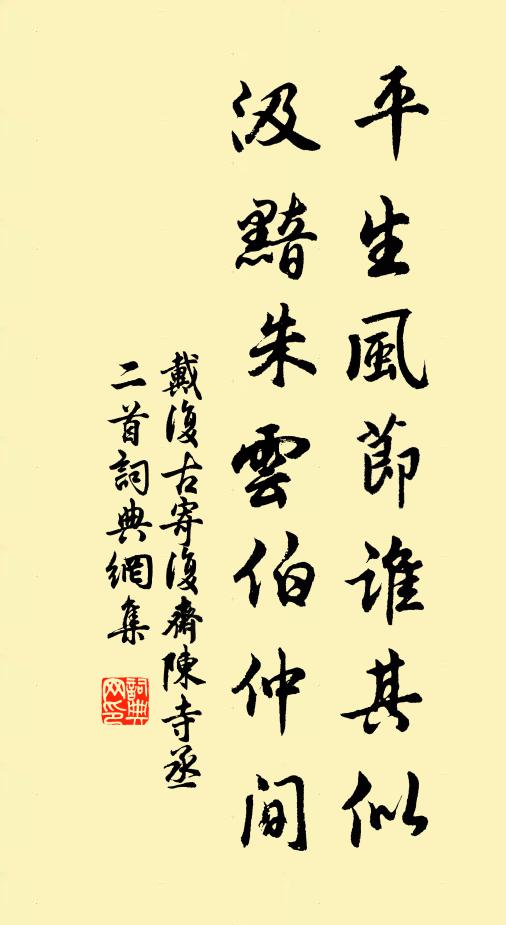 平生風節誰其似
汲黯朱雲伯仲間
戴復古寄復齋陳寺丞
二首詞典網集
詞典
网印